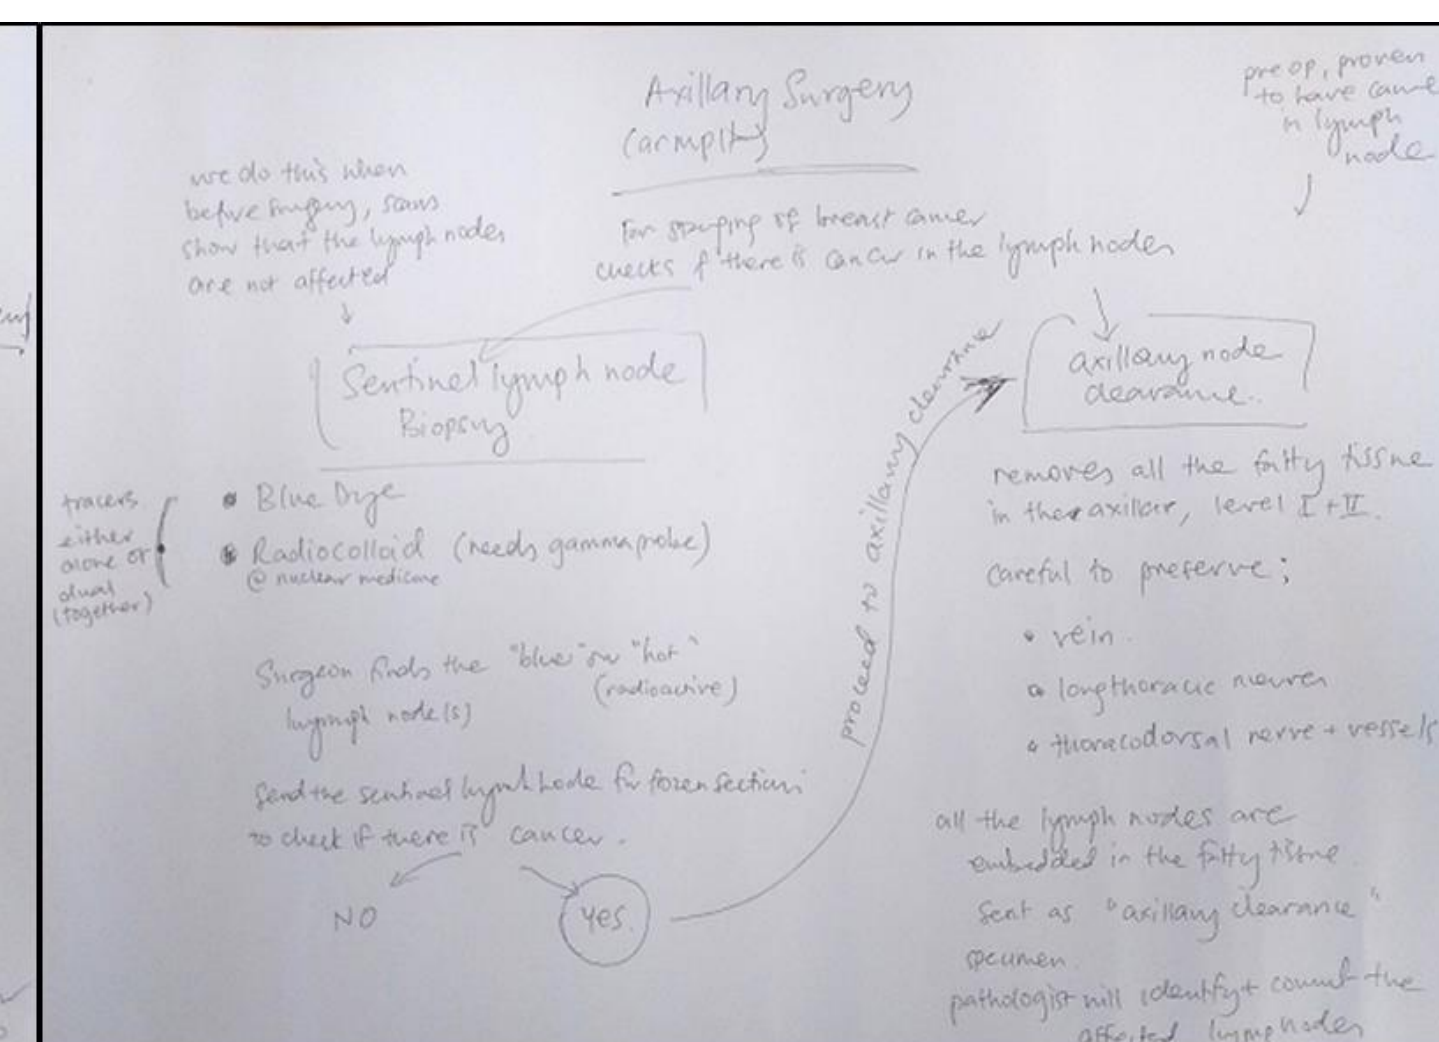 Axillary Surgery
(armpit)
For staging of breast cancer
checks if there is cancer in the lymph nodes
we do this when
before surgery, scans
show that the lymph nodes
are not affected
Sentinel lymph node
Biopsy
tracers
either
alone or
dual
(together)
• Blue Dye
• Radiocolloid (needs gamma probe)
@ nuclear medicine
Surgeon finds the "blue" or "hot"
(radioactive)
lymph node(s)
Send the sentinel lymph node for frozen section
to check if there is cancer.
NO
yes.
proceed to axillary clearance
pre op, proven
to have
in lymph
node
axillary node
clearance.
removes all the fatty tissue
in the axillar, level I + II.
Careful to preserve;
• vein.
• long thoracic
• thoracodorsal nerve + vessels
all the lymph nodes are
embedded in the fatty tissue
Sent as "axillary clearance"
specimen.
pathologist will identify + count the
affected lymph nodes